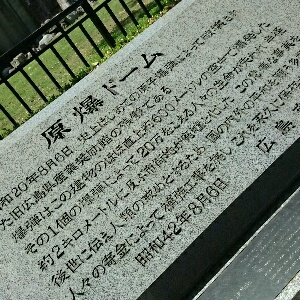 原爆ドーム
昭和20年8月6日 史上はじめての原子爆弾によって破壊された
旧広島県産業奨励館の残骸である
爆弾はこの建物のほぼ直上約600メートルの空中で爆発した
その1個の爆弾によって20万をこえる人々の生命が失われ
約2キロメートルに及ぶ市街地が廃墟と化した この悲痛な事実を
後世に伝え人類の戒めとするため
人々の基金によって補強工事を施しこれを永久に
昭和42年8月6日
広島